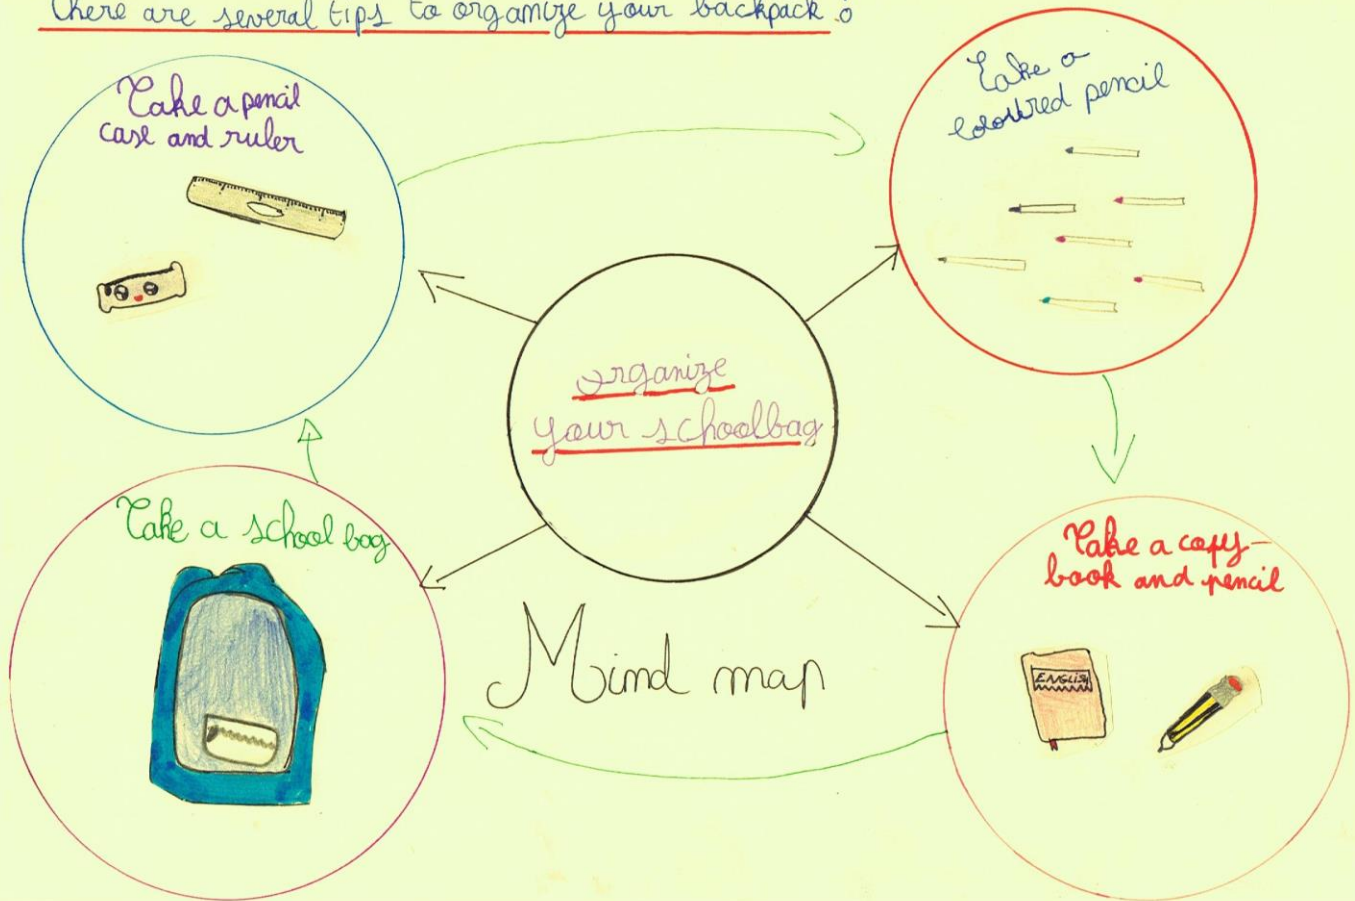 There are several tips to organize your backpack :
Take a pencil
case and ruler
Take a
coloured pencil
organize
your schoolbag
Take a school bag
Take a copy-
book and pencil
ENGLISH
Mind map